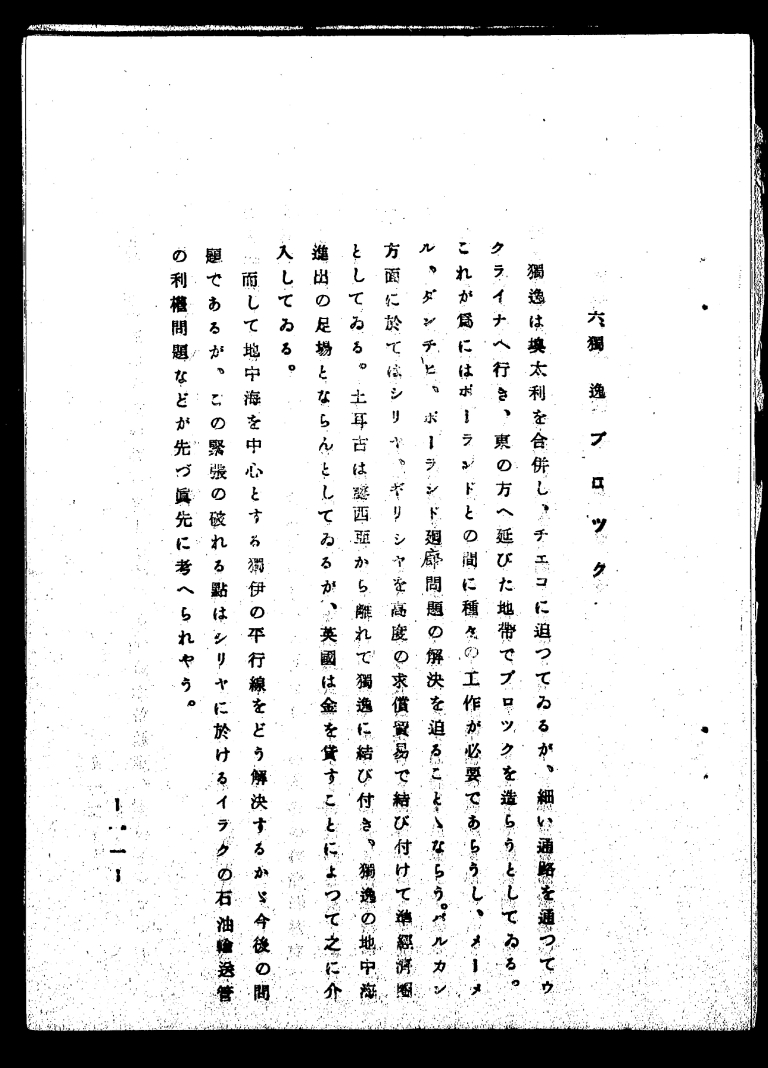 六、獨逸ブロック
獨逸は墺太利を合併し、チエコに迫つてゐるが、細い通路を通つてウ
クライナへ行き、東の方へ延びた地帶でブロツクを造らうとしてゐる。
これが爲にはポーランドとの間に種々の工作が必要であらうし、メーメ
ル、ダンチヒ、ポーランド廻廊問題の解決を迫ることゝならう。バルカン
方面に於てはシリヤ。ギリシヤを高度の求償貿易で結び付けて準經濟圈
としてゐる。土耳古は露西亞から離れて獨逸に結び付き、獨逸の地中海
進出の足場とならんとしてゐるが、英國は金を貸すことによつて之に介
入してゐる。
而して地中海を中心とする獨伊の平行線をどう解決するかゞ今後の問
題であるが、この緊張の破れる點はシリヤに於けるイラクの石油輸送管
の利權問題などが先づ眞先に考へられやう。